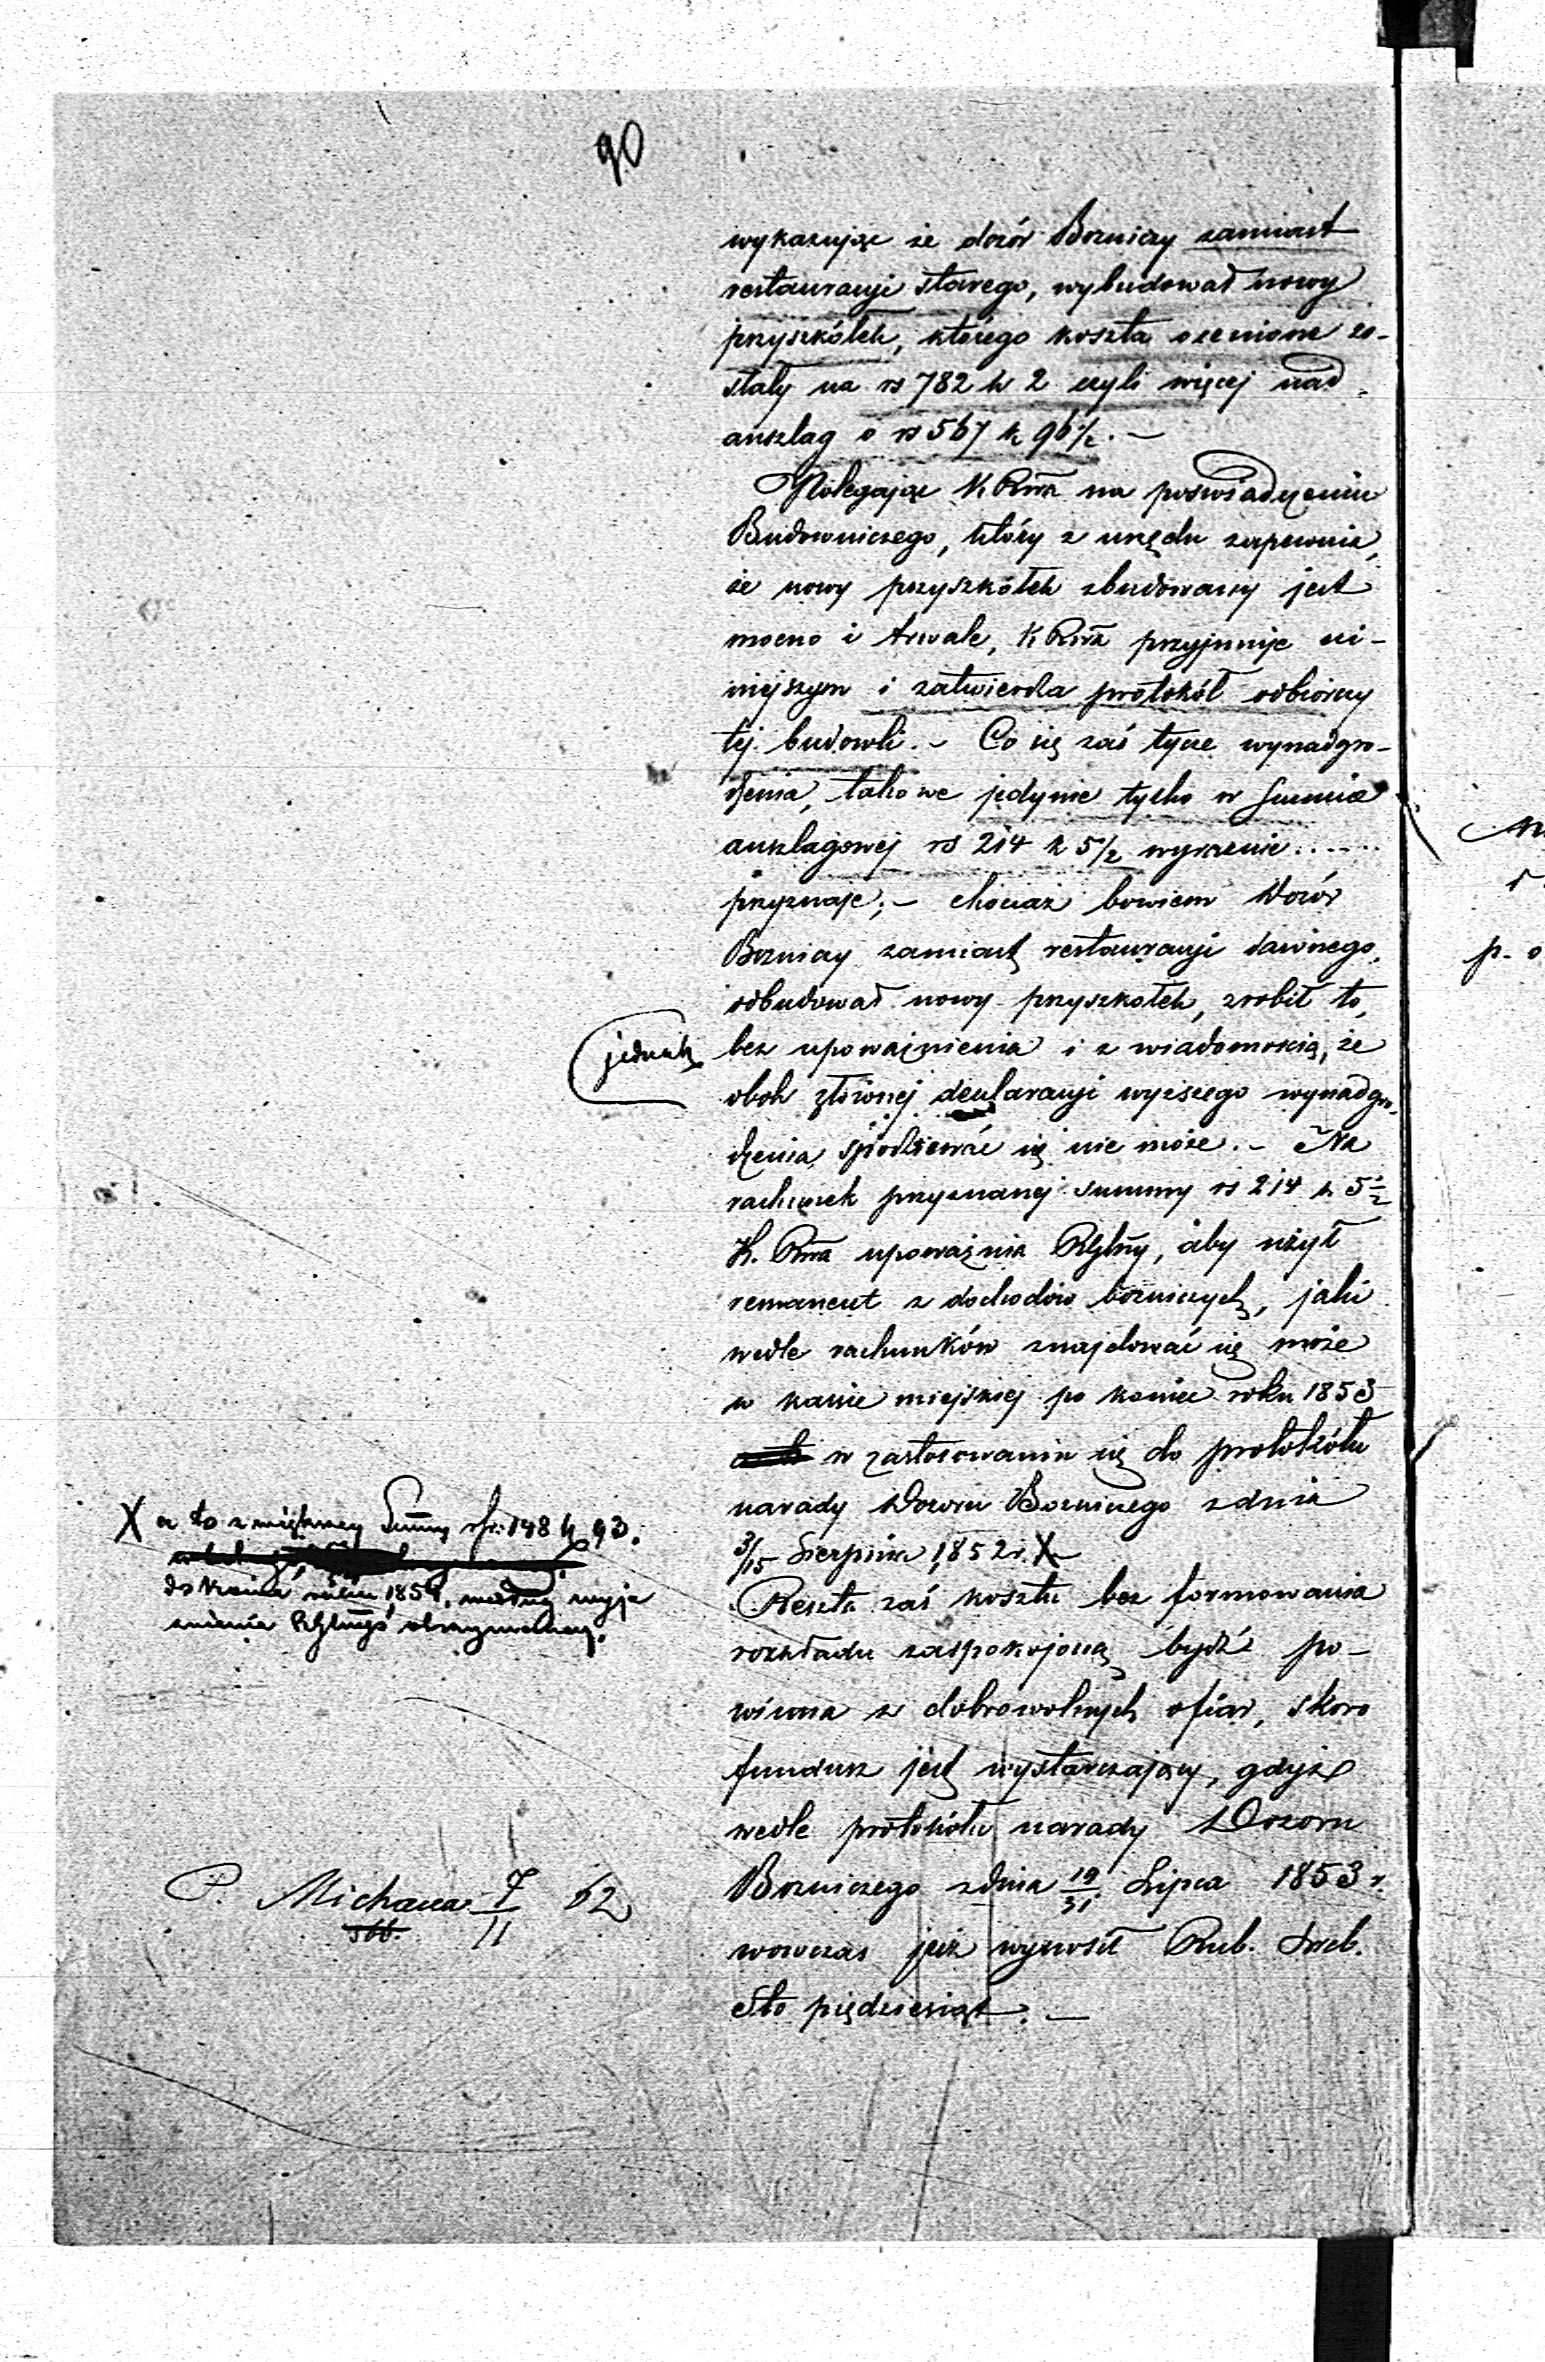 90
wykazując że dozór Bozniczy zamiast
restauracyi starego, wybudował nowy
przyszkółek, którego koszta ocenione zo-
stały na rs 782 k 2 czyli więcej nad
anszlag o rs 567 k 96 1/2. —
Polegając K Rwa na poswiadczeniu
Budowniczego, który z urzędu zapewnia,
że nowy przyszkółek zbudowany jest
mocno i trwale, K Rwa przyjmuje ni-
niejszym i zatwierdza protokół odbiorczy
tej budowli. - Co się zaś tycze wynadgro-
dzenia, takowe jedynie tylko w Summie
anszlagowej rs 214 k 5 1/2 wyrzenie ......
przyznaje; - chociaż bowiem Dozór
Bozniczy zamiast restauracyi dawnego,
odbudował nowy przyszkółek, zrobił to,
jednak
bez upoważnienia i z wiadomością, że
obok złożonej deklaracyi wyższego wynadgro-
dzenia spodziewać się nie może. - Na
rachunek przyznanej summy rs 214 k 5 1/2
K. Rwa upoważnia RGlny, aby użył
remanent z dochodów bozniczych, jaki
wedle rachunków znajdować się może
w kassie miejskiej po koniec roku 1853
w zastosowaniu się do protokółu
narady Dozoru Bozniczego z dnia
3/15 Sierpnia 1852 r. X
X a to z Summy rs. 148 k 93.
do końca roku 1854, według wyja
śnienia
Reszta zaś kosztu bez formowania
rozkładu zaspokojoną bydź po-
winna z dobrowolnych ofiar, skoro
fundusz jest wystarczający, gdyż
wedle protokółu narady Dozoru
Bozniczego z dnia 19/31 Lipca 1853 r.
wowczas już wynosił Rub. Sreb.
Sto pięćdziesiąt. —
P. Michaua 7/11 62